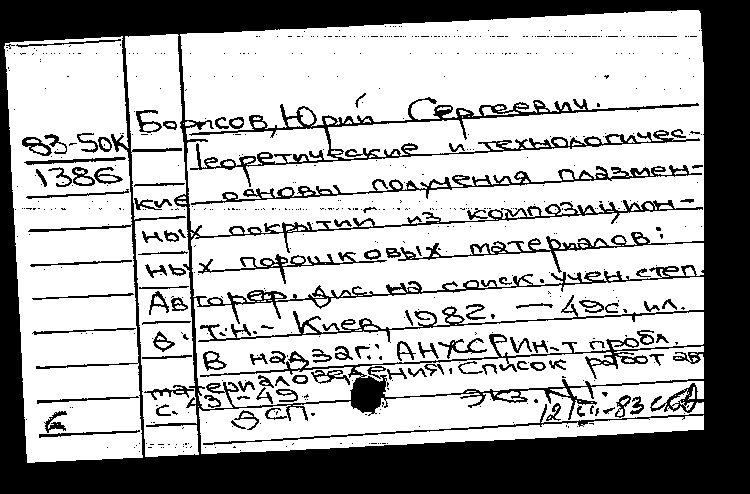 Борисов, Юрий Сергеевич.
83-50К
1386
Теоретические и технологичес-
кие основы получения плазмен-
ных покрытий из композицион-
ных порошковых материалов:
Автореф. дис. на соиск. учен. степ.
д. т.н. - Киев, 1982. - 49с., ил.
В надзаг.: АН УССР, Ин-т пробл.
материаловедения. Список работ авт
с. 43-49
ДСП.
экз. N 1.